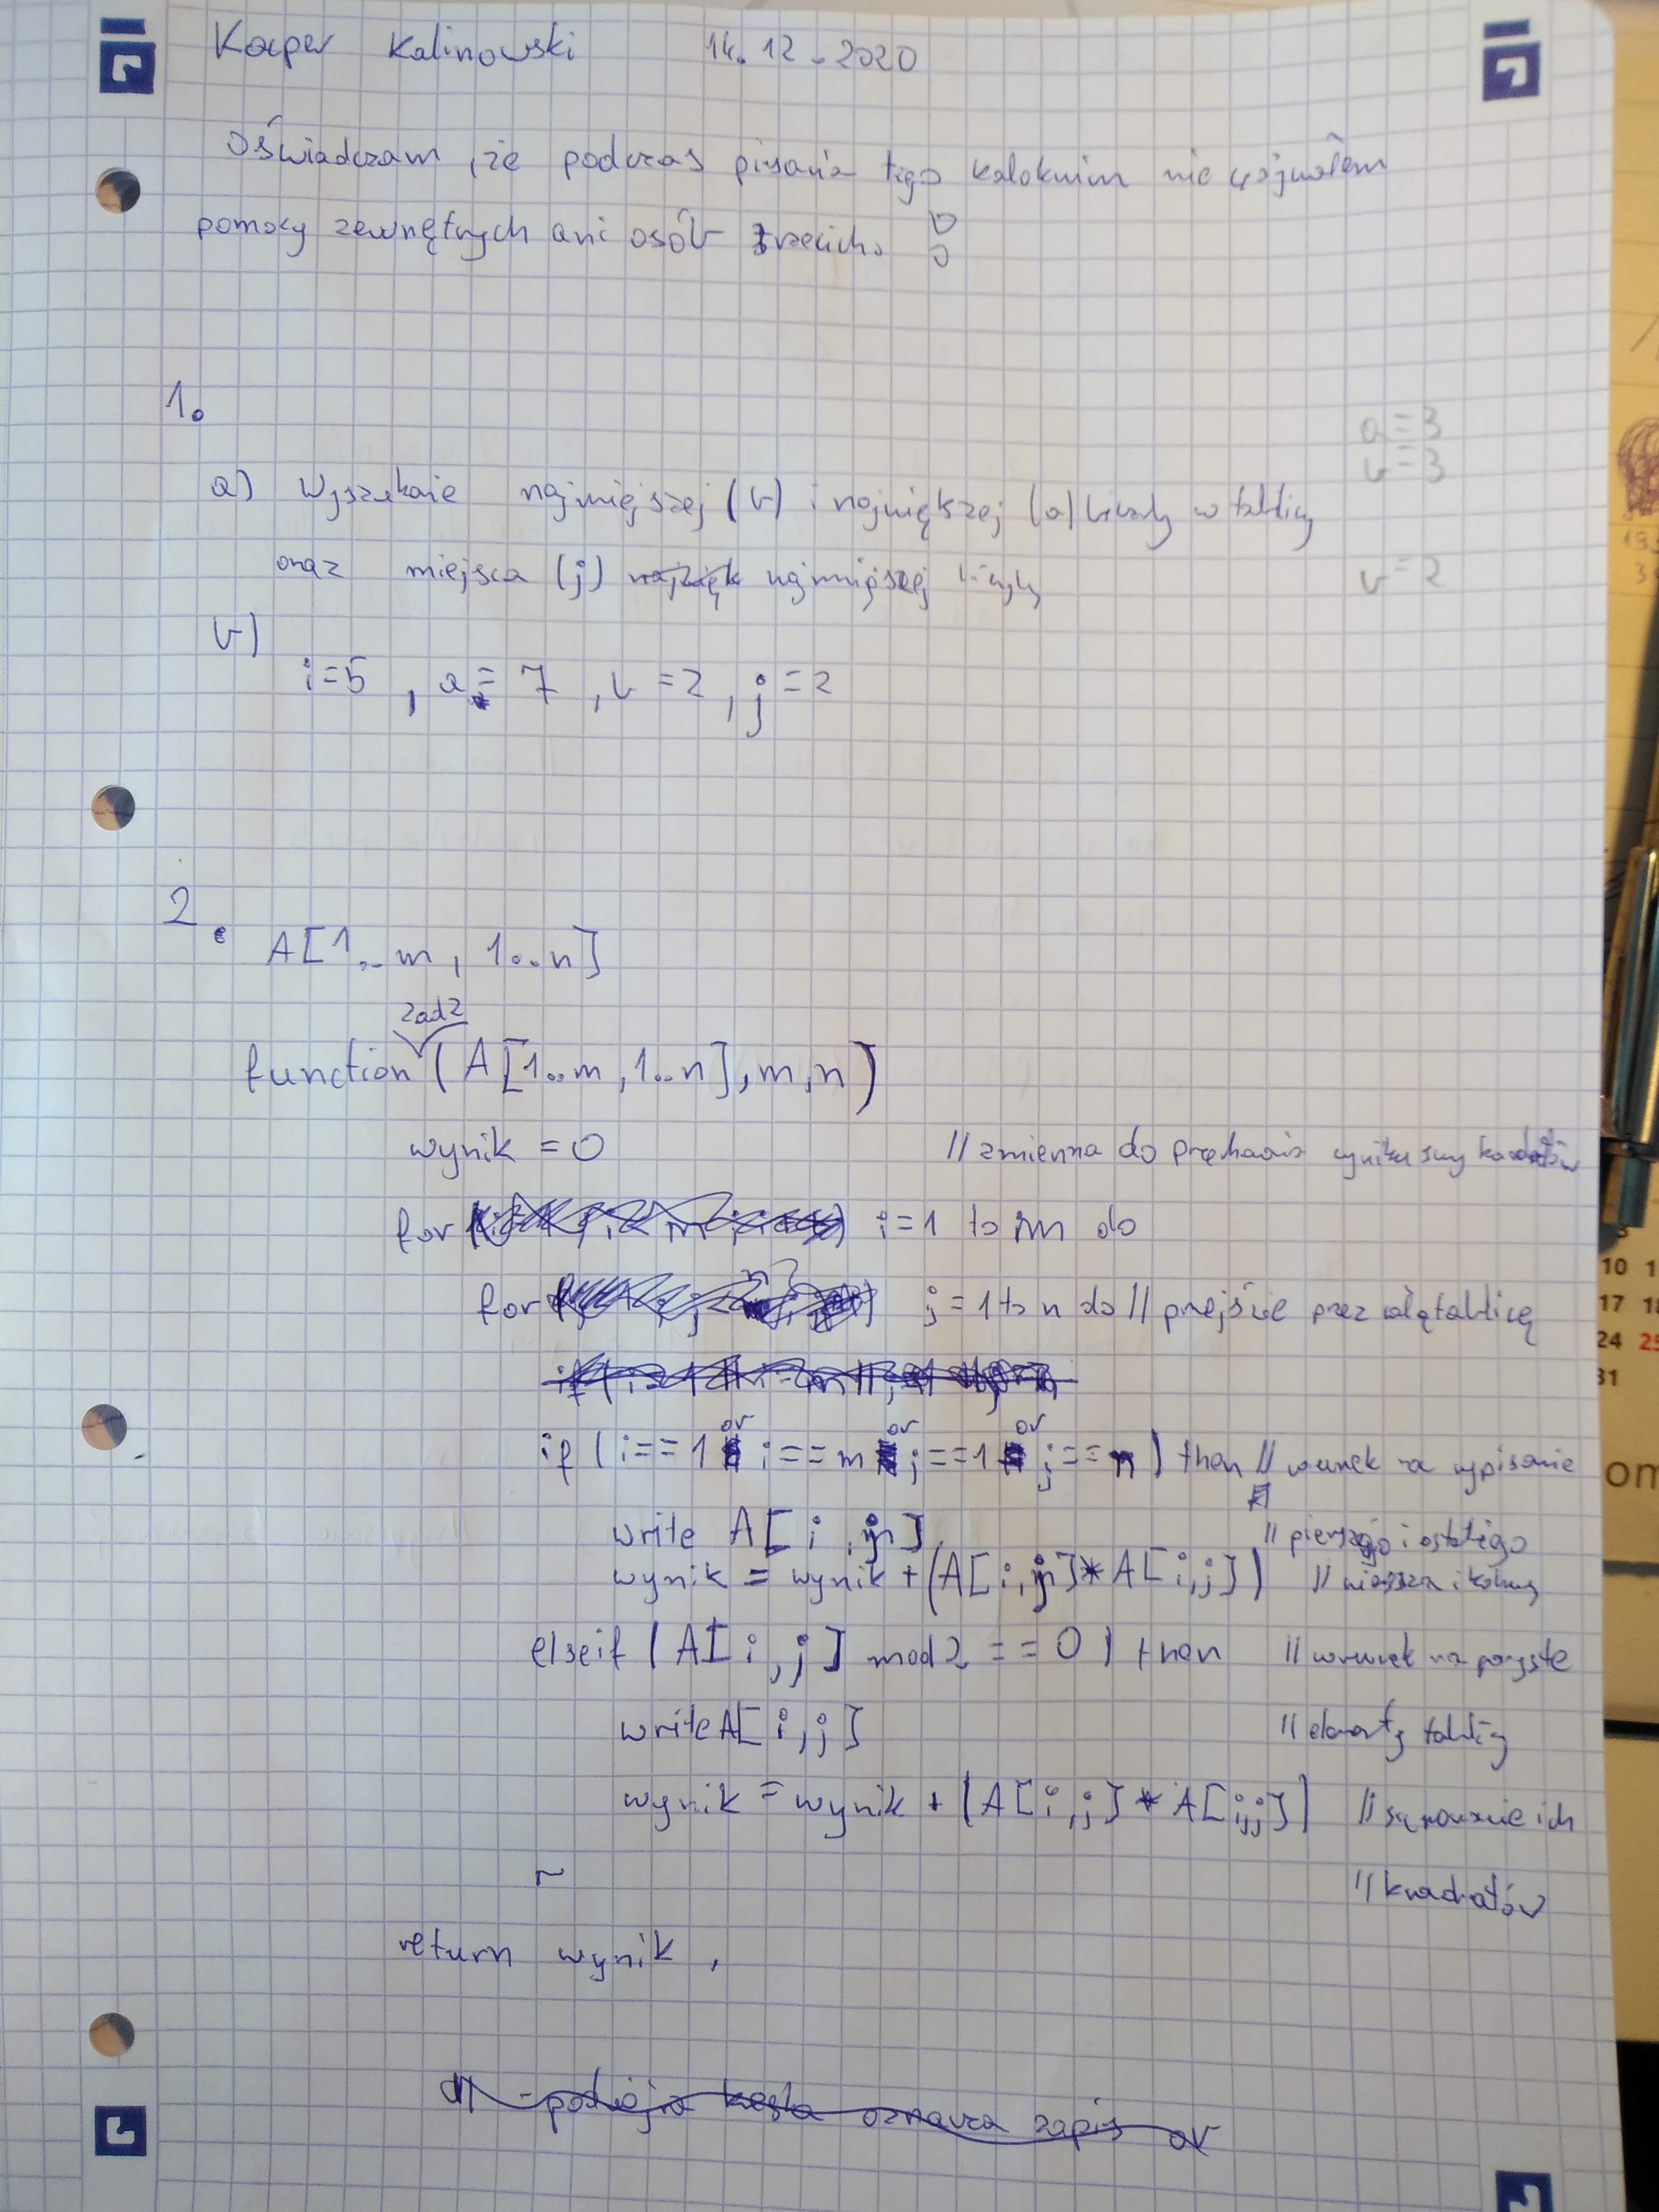 Kacper Kalinowski 14.12.2020
Oświadczam, że podczas pisania tego kolokwium nie
pomocy zewnętrznych ani osób trzecich.
1.
a=3
b=3
a) Wyszukanie najmniejszej (b) i największej (a) liczby w tablicy
oraz miejsca (j) najmniejszej liczby
b=2
b)
i=5, a=7, b=2, j=2
2.
A[1..m, 1..n]
zad2
function (A[1..m, 1..n], m, n)
wynik = 0 // zmienna do wyniku sumy kwadratów
for i=1 to m do
for j=1 to n do // przejście przez całą tablicę
if (i==1 or i==m or j==1 or j==n) then // warunek na wypisanie
write A[i,j] // pierwszego i ostatniego
wynik = wynik + (A[i,j]*A[i,j]) // wiersza i kolumny
elseif (A[i,j] mod 2 == 0) then // warunek na parzyste
write A[i,j] // elementy tablicy
wynik = wynik + (A[i,j] * A[i,j]) // ich
// kwadratów
return wynik,
- podwójna kreska oznacza zapis or
10
17
24
31